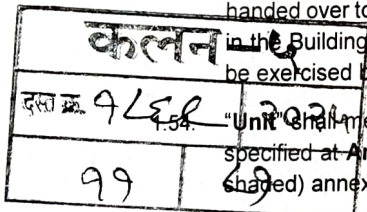 handed over to
कलन - ५
in the Building
be exercised b
दस्त क्र. १८६९ २०२५
1.54. "Unit" shall me
specified at A
११ ८१
shaded) annex